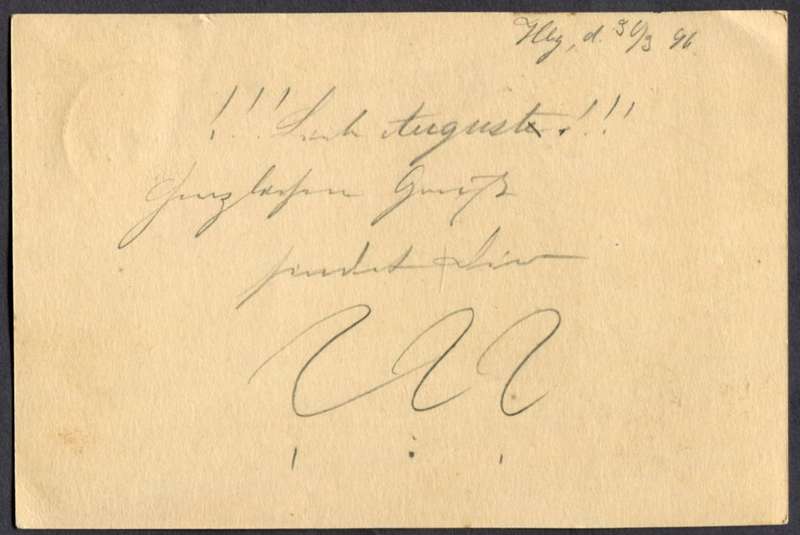 Hbg, d. 30/3 96.
!!! Lieb Auguste!!!
Herzlichen Gruß
sendet Dir
???